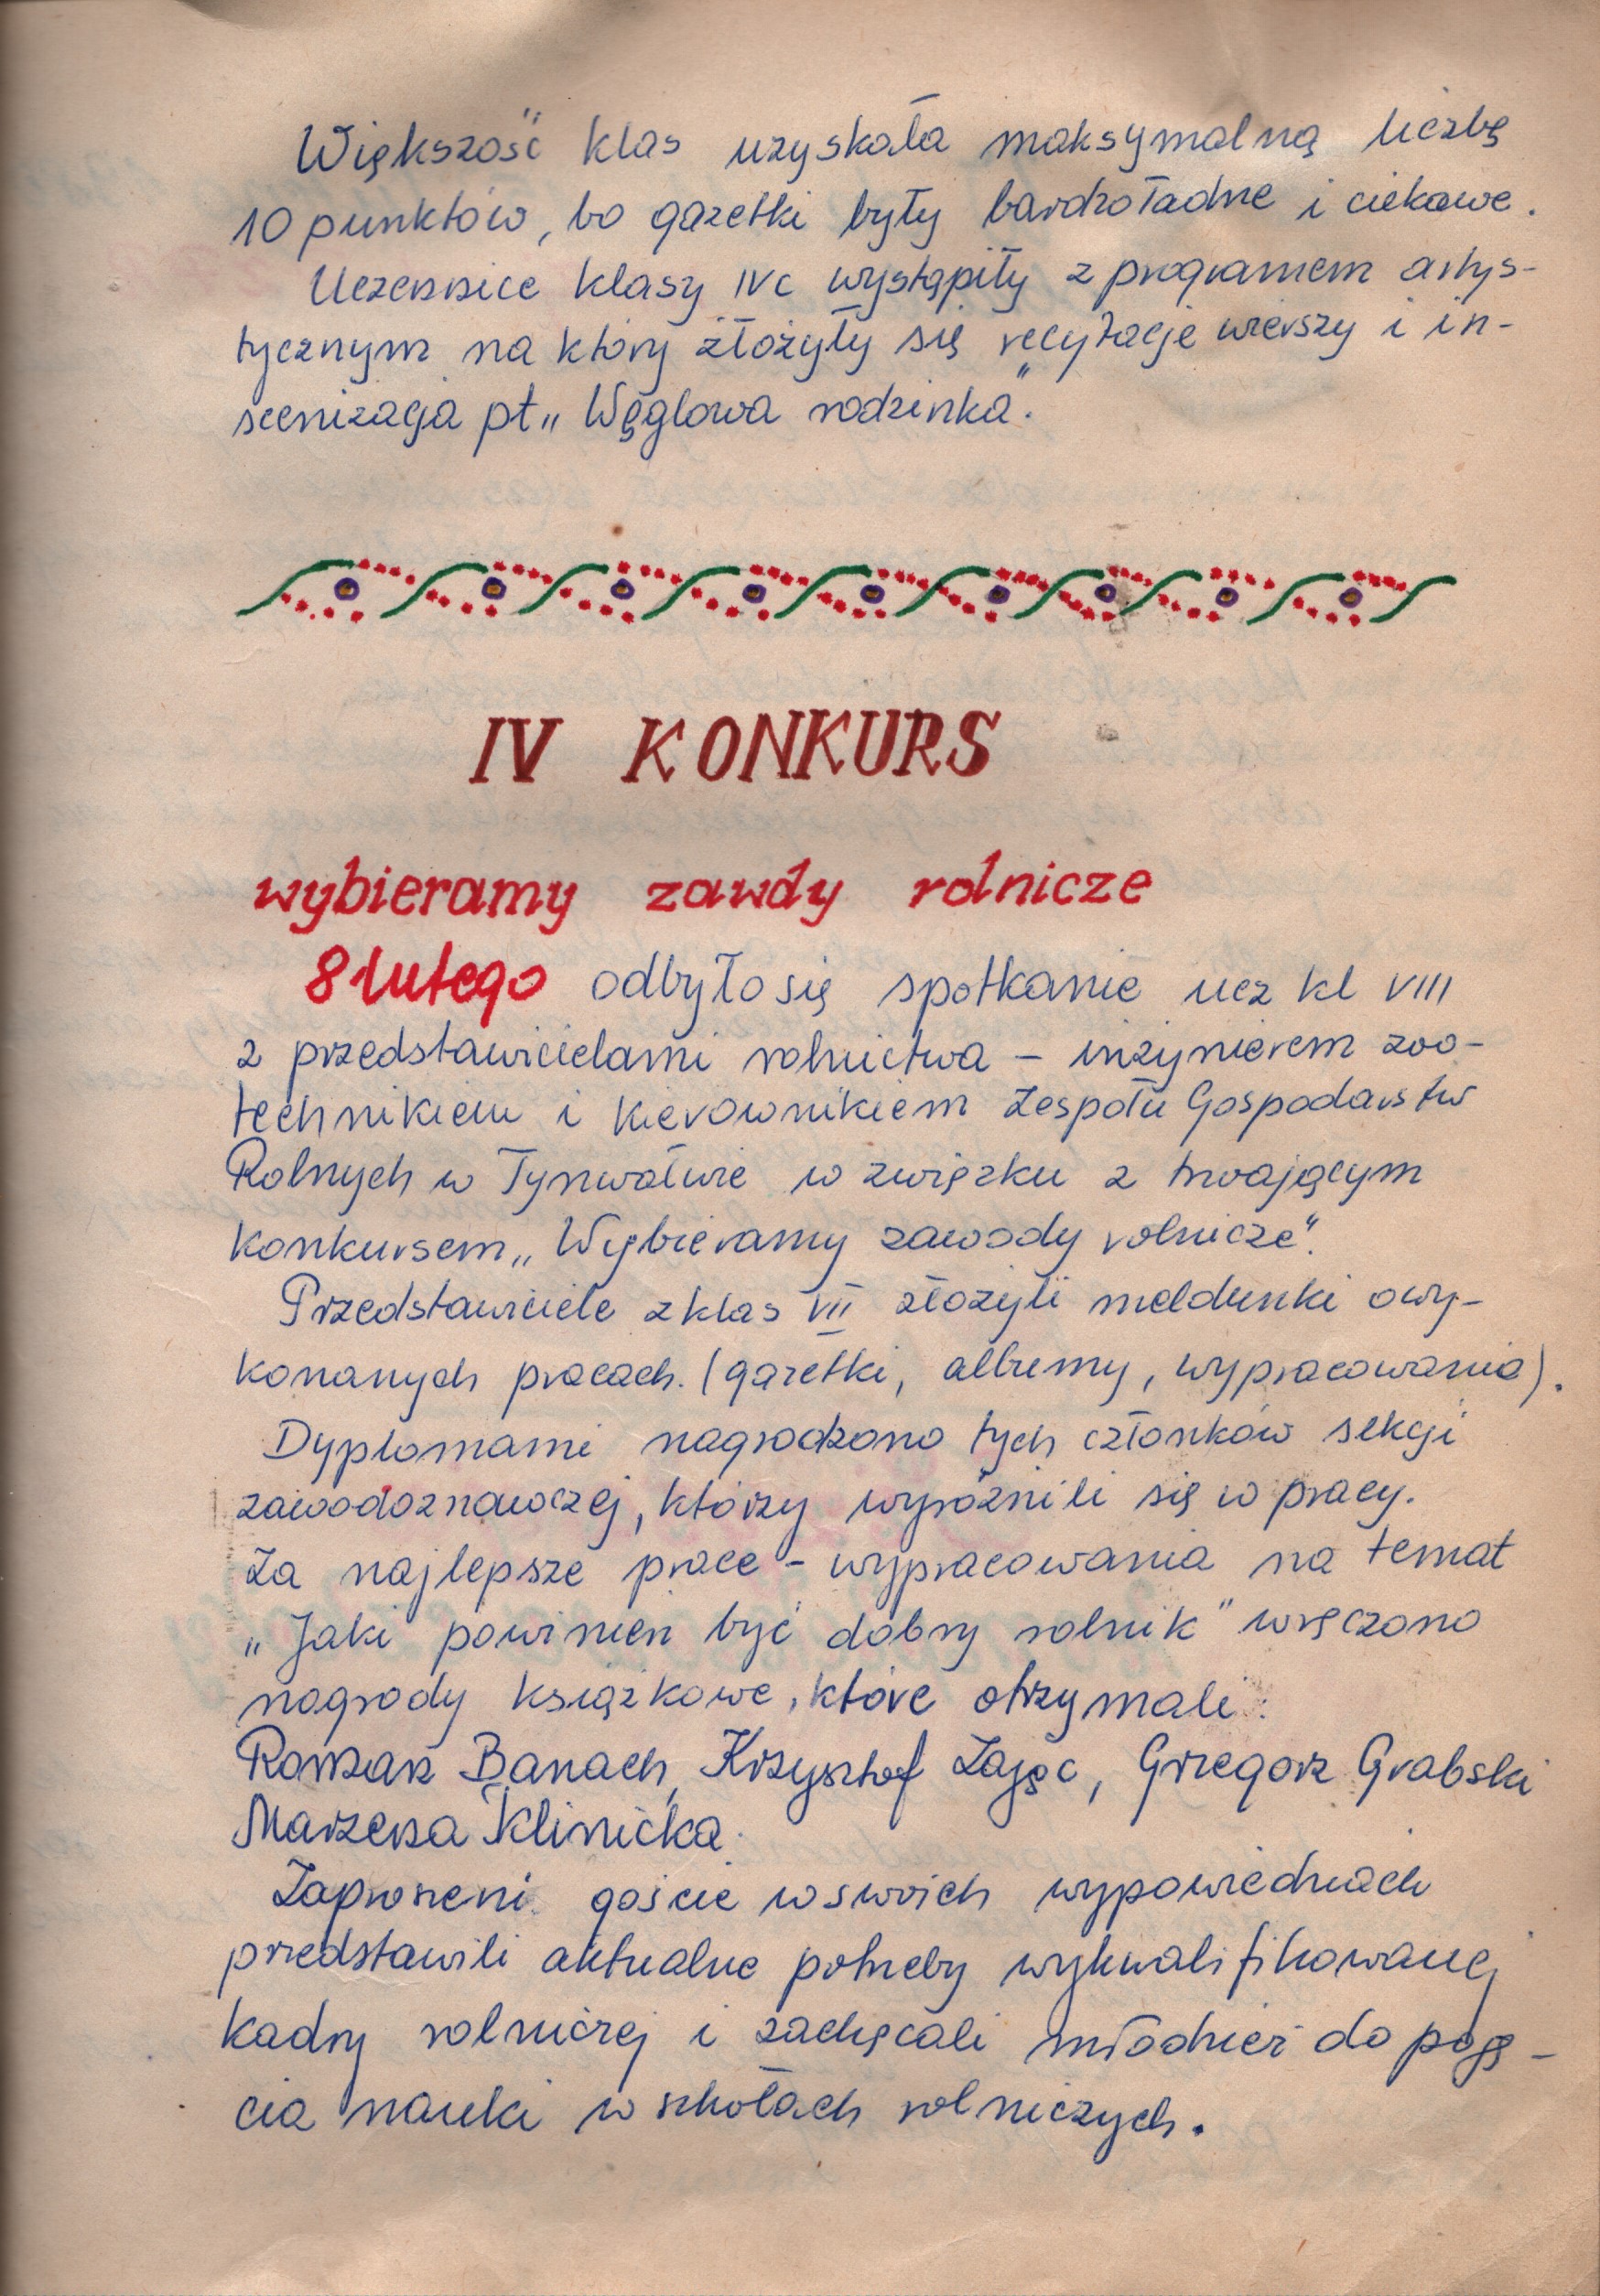 Większość klas uzyskała maksymalną liczbę
10 punktów, bo gazetki były bardzo ładne i ciekawe.
Uczennice klasy IVc wystąpiły z programem artys-
tycznym na który złożyły się recytacje wierszy i in-
scenizacja pt „Węglowa rodzinka".
IV KONKURS
wybieramy zawdy rolnicze
8 lutego odbyło się spotkanie ucz kl VIII
z przedstawicielami rolnictwa – inżynierem zoo-
technikiem i kierownikiem Zespołu Gospodarstw
Rolnych w Tynwałdzie w związku z trwającym
konkursem „Wybieramy zawody rolnicze".
Przedstawiciele z klas VII złożyli meldunki o wy-
konanych pracach. (gazetki, albumy, wypracowania).
Dyplomami nagrodzono tych członków sekcji
zawodoznawczej, którzy wyróżnili się w pracy.
Za najlepsze prace - wypracowania na temat
„Jaki powinien być dobry rolnik" wręczono
nagrody książkowe, które otrzymali:
Roman Banach, Krzysztof Zając, Grzegorz Grabski
Marzena Klinicka.
Zaproszeni goście w swoich wypowiedziach
przedstawili aktualne potrzeby wykwalifikowanej
kadry rolniczej i zachęcali młodzież do poję-
cia nauki w szkołach rolniczych.